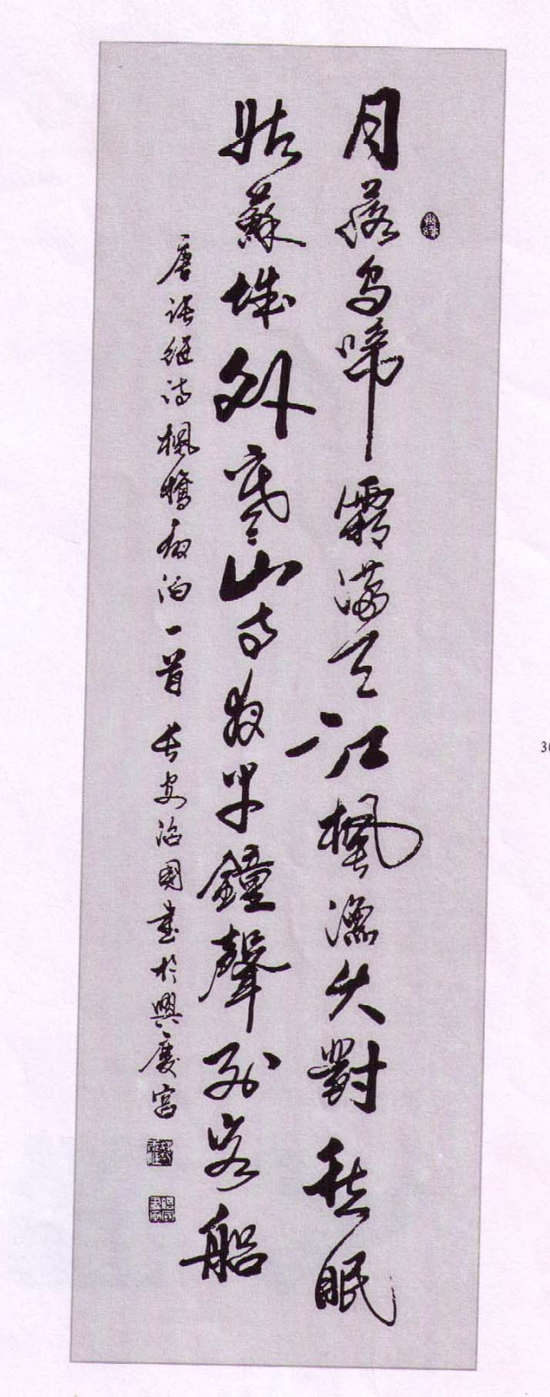 月落烏啼霜滿天江楓漁火對愁眠
姑蘇城外寒山寺夜半鐘聲到客船
唐張繼詩楓橋夜泊一首 長安治國書於興慶宮